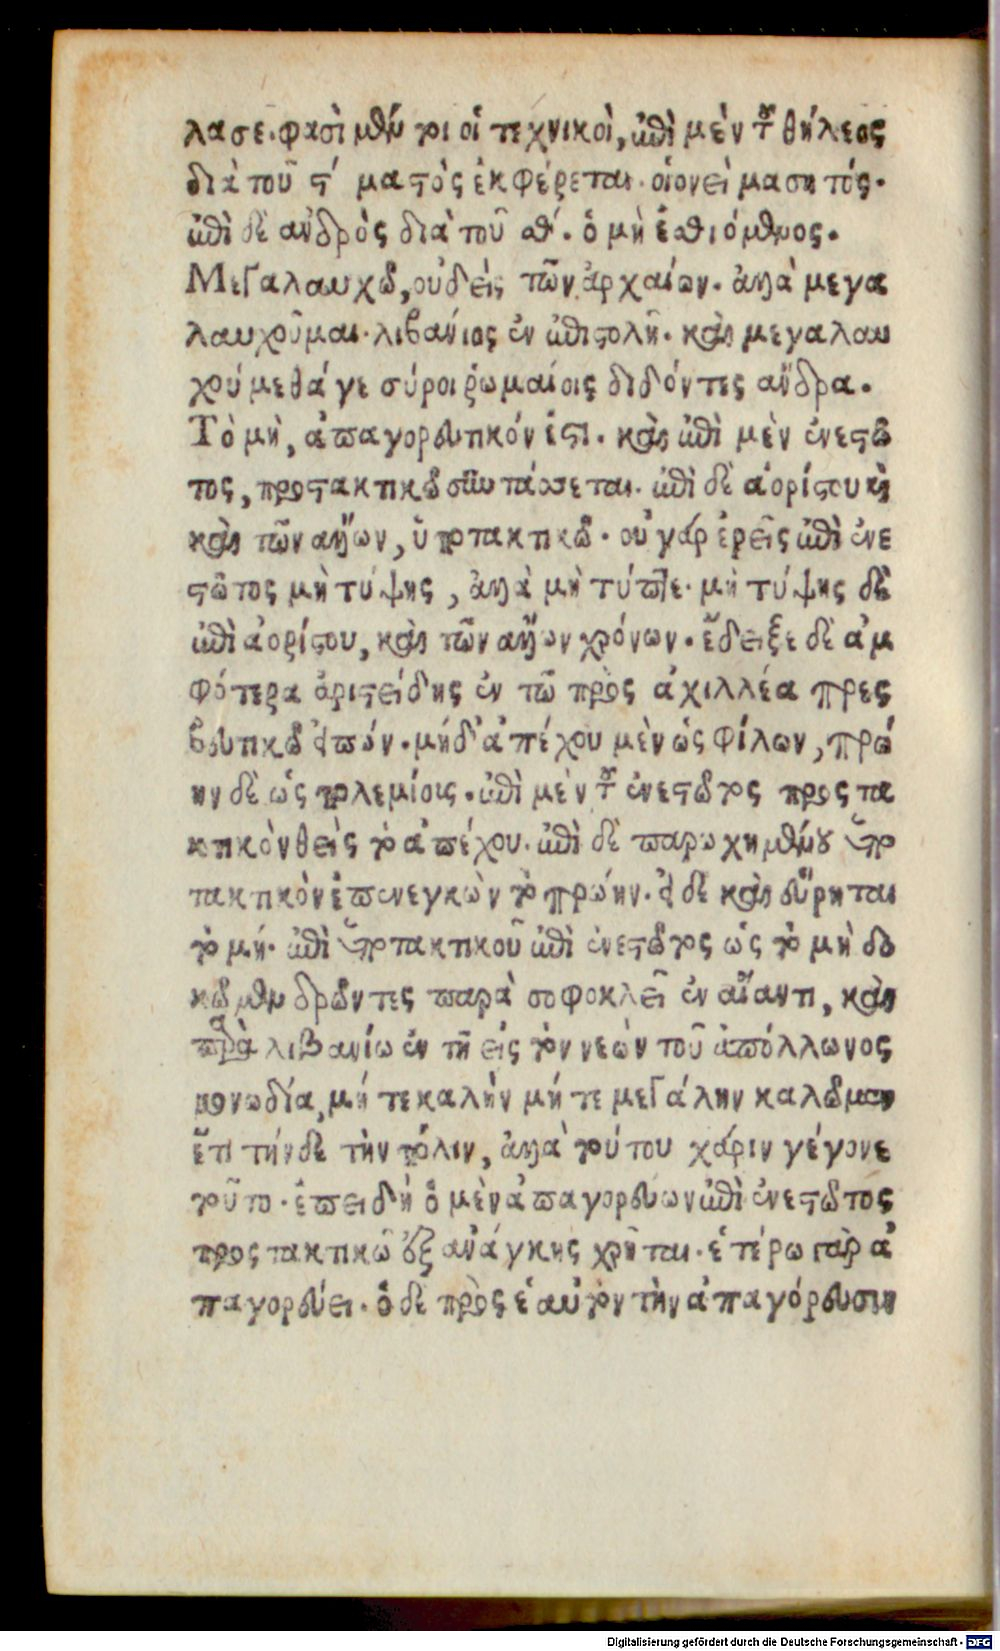 λασε. φασὶ μέν τοι οἱ τεχνικοὶ, ἐπὶ μὲν τῆς θήλεος
διὰ τοῦ τ´ μαστὸς ἐκφέρεται. οἱονεὶ μασητός.
ἐπὶ δὲ ἀνδρὸς διὰ τοῦ σθ´. ὁ μὴ ἐσθιόμενος.
Μεγαλαυχῶ, οὐδεὶς τῶν ἀρχαίων. ἀλλὰ μεγα
λαυχοῦμαι. λιβανίος ἐν ἐπιστολῆ. καὶ μεγαλαυ
χούμεθά γε σύροι ῥωμαίοις διδόντες ἄνδρα.
Τὸ μὴ, ἀπαγορευτικόν ἐστι. καὶ ἐπὶ μὲν ἐνεστῶ
τος, προστακτικῶ συντάσσεται. ἐπὶ δὲ ἀορίστου
καὶ τῶν ἄλλων, ὑποτακτικῶ. οὐ γάρ ἐρεῖς ἐπὶ ἐνε
στῶτος μὴ τύψης, ἀλλὰ μὴ τύπτε. μὴ τύψης δὲ
ἐπὶ ἀορίστου, καὶ τῶν ἄλλων χρόνων. ἔδειξε δὲ ἀμ
φότερα ἀριστείδης ἐν τῶ πρὸς ἀχιλλέα πρεσ
βευτικῶ εἰπών. μήδ' ἀπέχου μὲν ὡς φίλων, πρώ
ην δὲ ὡς πολεμίοις. ἐπὶ μὲν τοῦ ἐνεστῶτος προστα
κτικὸν θεὶς τὸ ἀπέχου. ἐπὶ δὲ παρωχημένου ὑπο
τακτικὸν ἐπενεγκὼν τὸ πρώην. εἰ δὲ καὶ εὕρηται
τὸ μή. ἐπὶ ὑποτακτικοῦ ἐπὶ ἐνεστῶτος ὡς τὸ μὴ δο
κῶμεν δρῶντες παρὰ σοφοκλεῖ ἐν αἴαντι, καὶ
παρὰ λιβανίω ἐν τῆ εἰς τὸν νεὼν τοῦ ἀπόλλωνος
μονωδία, μή τε καλὴν μή τε μεγάλην καλῶμεν
ἔτι τήνδε τὴν πόλιν, ἀλλὰ τούτου χάριν γέγονε
τοῦτο. ἐπειδὴ ὁ μὲν ἀπαγορεύων ἐπὶ ἐνεστῶτος
προστακτικῶ ἐξ ἀνάγκης χρῆται. ἑτέρω γὰρ ἀ
παγορεύει. ὁ δὲ πρὸς ἑαυτὸν τὴν ἀπαγόρευσιν
Digitalisierung gefördert durch die Deutsche Forschungsgemeinschaft · DFG